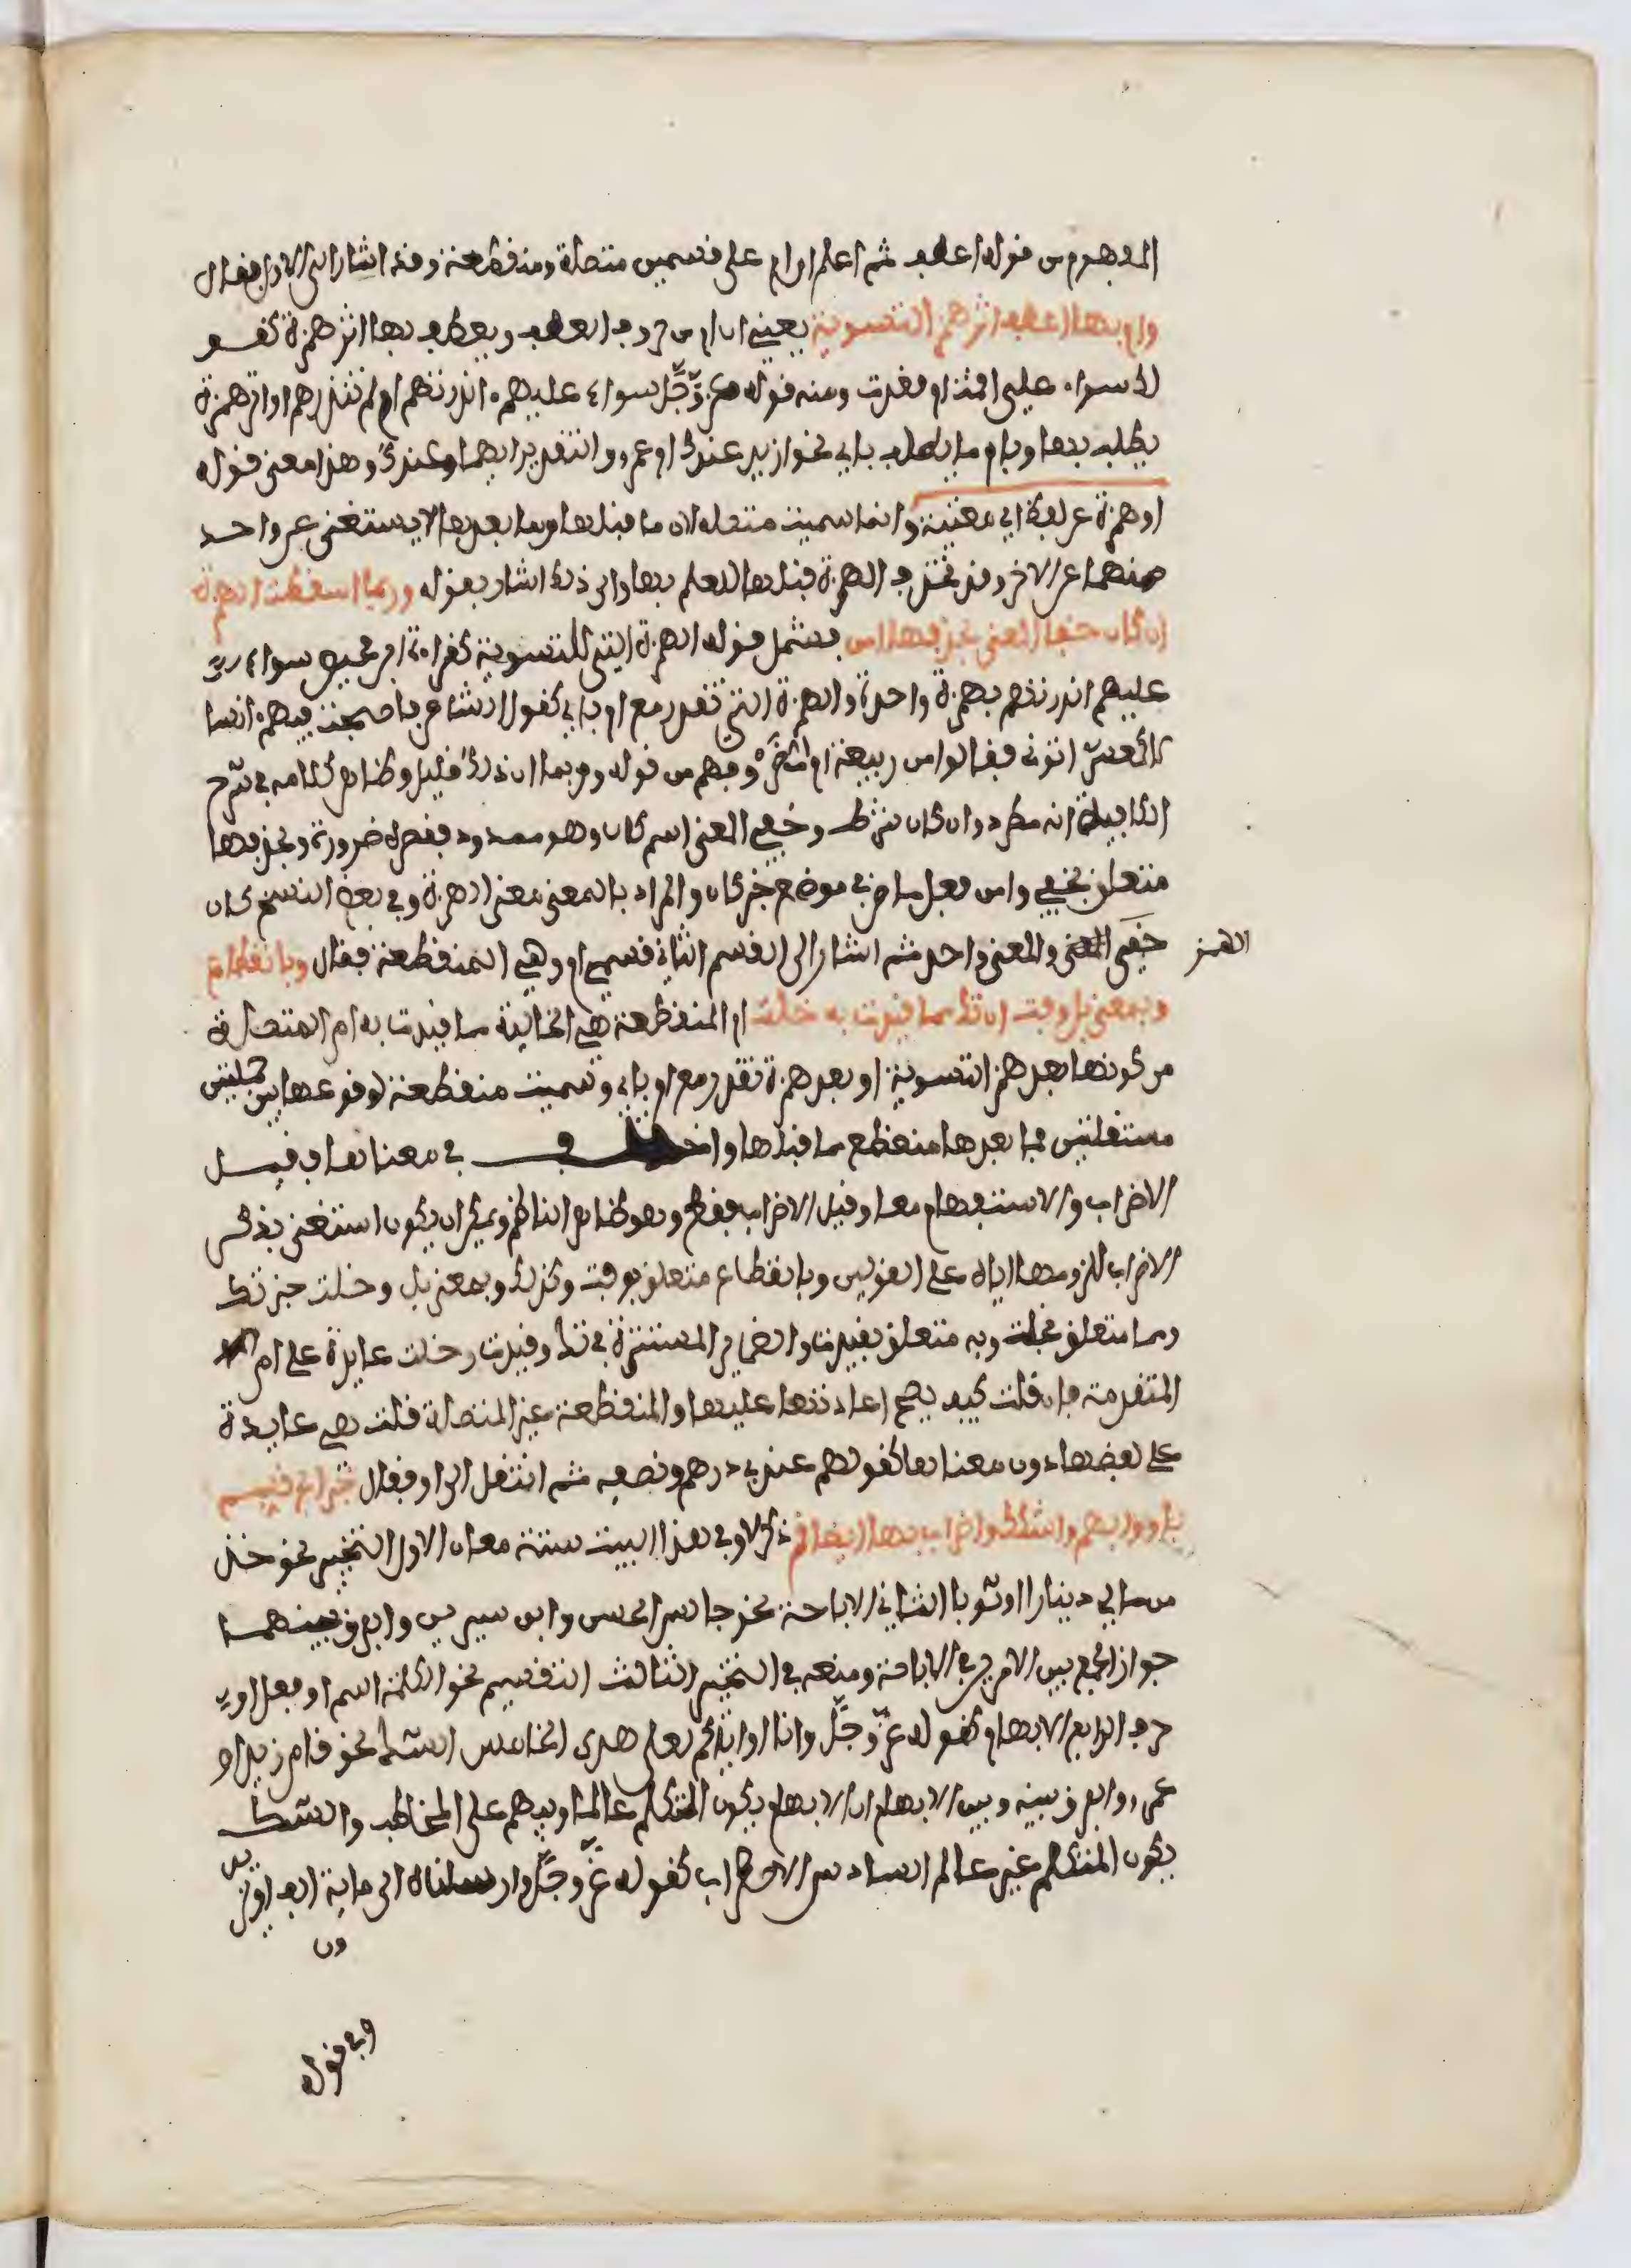 المفهوم من قوله اعطف ثم اعلم ان ام على قسمين متصلة ومنقطعة وقد اشار الى الاول فقال
وام بها اعطف اثر همز التسوية يعني ان ام من حروف العطف ويعطف بها اثر همزة كقو
لك سواء علي اقمت ام قعدت ومنه قوله عز وجل سواء عليهم ءانذرتهم ام لم تنذرهم او اثر همزة
يطلب بها وبام ما يطلب باي نحو ازيد عندك ام عمرو والتقدير ايهما عندك وهذا معنى قوله
او همزة عن لفظ اي مغنية وانما سميت متصلة لان ما قبلها وما بعدها لا يستغنى عن واحد
منهما عن الاخر وقد تحذف الهمزة قبلها للعلم بها والى ذلك اشار بقوله وربما اسقطت الهمزة
ان كان خفا المعنى بحذفها امن فشمل قوله الهمزة التي للتسوية كقراءة ابن محيصن سواء
عليهم انذرتهم بهمزة واحدة والهمزة التي تقدر مع ام باي كقول الشاعر فاصبحت فيهم ءانسا
لا كمعشر اتوني فقالوا من ربيعة ام مضر وفهم من قوله وربما ان ذلك قليل وظاهر كلامه في شرح
الكافية انه مطرد وان كان شرط وخفي المعنى اسم كان وهو ممدود فقصره ضرورة وبحذفها
متعلق بخفي وامن فعل ماض في موضع خبر كان والمراد بالمعنى معنى الهمزة وفي بعض النسخ كان
خفى المعنى والمعنى واحد ثم اشار الى القسم الثاني قسمي ام وهي المنقطعة فقال وبانقطاع
الهمز
وبمعنى بل وفت ان تك مما قيدت به خلت ام المنقطعة هي الخالية مما قيدت به ام المتصلة
من كونها بعد همز التسوية او بعد همزة تقدر مع ام باي وسميت منقطعة لوقوعها بين جملتين
مستقلتين فما بعدها منقطع عما قبلها واختلف في معناها فقيل
الاضراب والاستفهام معا وقيل الاضراب فقط وهو ظاهر الناظم ويمكن ان يكون استغنى بذكر
الاضراب للزومها اياه على القولين وبانقطاع متعلق بوفت وكذلك وبمعنى بل وخلت خبر تك
ومما متعلق بخلت وبه متعلق بقيدت والضمائر المستترة في تك وقيدت وخلت عايدة على ام
المتقدمة فان قلت كيف يصح اعادتها عليها والمنقطعة غير المتصلة قلت هي عايدة
على لفظها دون معناها كقولهم عندي درهم ونصفه ثم انتقل الى او فقال خير ابح قسم
باو وابهم واشكك واضراب بها ايضا نم ذكر لاو في هذا البيت ستة معان الاول التخيير نحو خذ
من مالي دينارا او ثوبا الثاني الاباحة نحو جالس الحسن او ابن سيرين والفرق بينهما
جواز الجمع بين الامرين في الاباحة ومنعه في التخيير الثالث التقسيم نحو الكلمة اسم او فعل او
حرف الرابع الابهام كقوله عز وجل وانا او اياكم لعلى هدى الخامس الشك نحو قام زيد او
عمرو والفرق بينه وبين الابهام ان الابهام يكون المتكلم عالما ويبهم على المخاطب والشك
يكون المتكلم غير عالم السادس الاضراب كقوله عز وجل وارسلناه الى ماية الف او يزيد
ون
وفي قوله